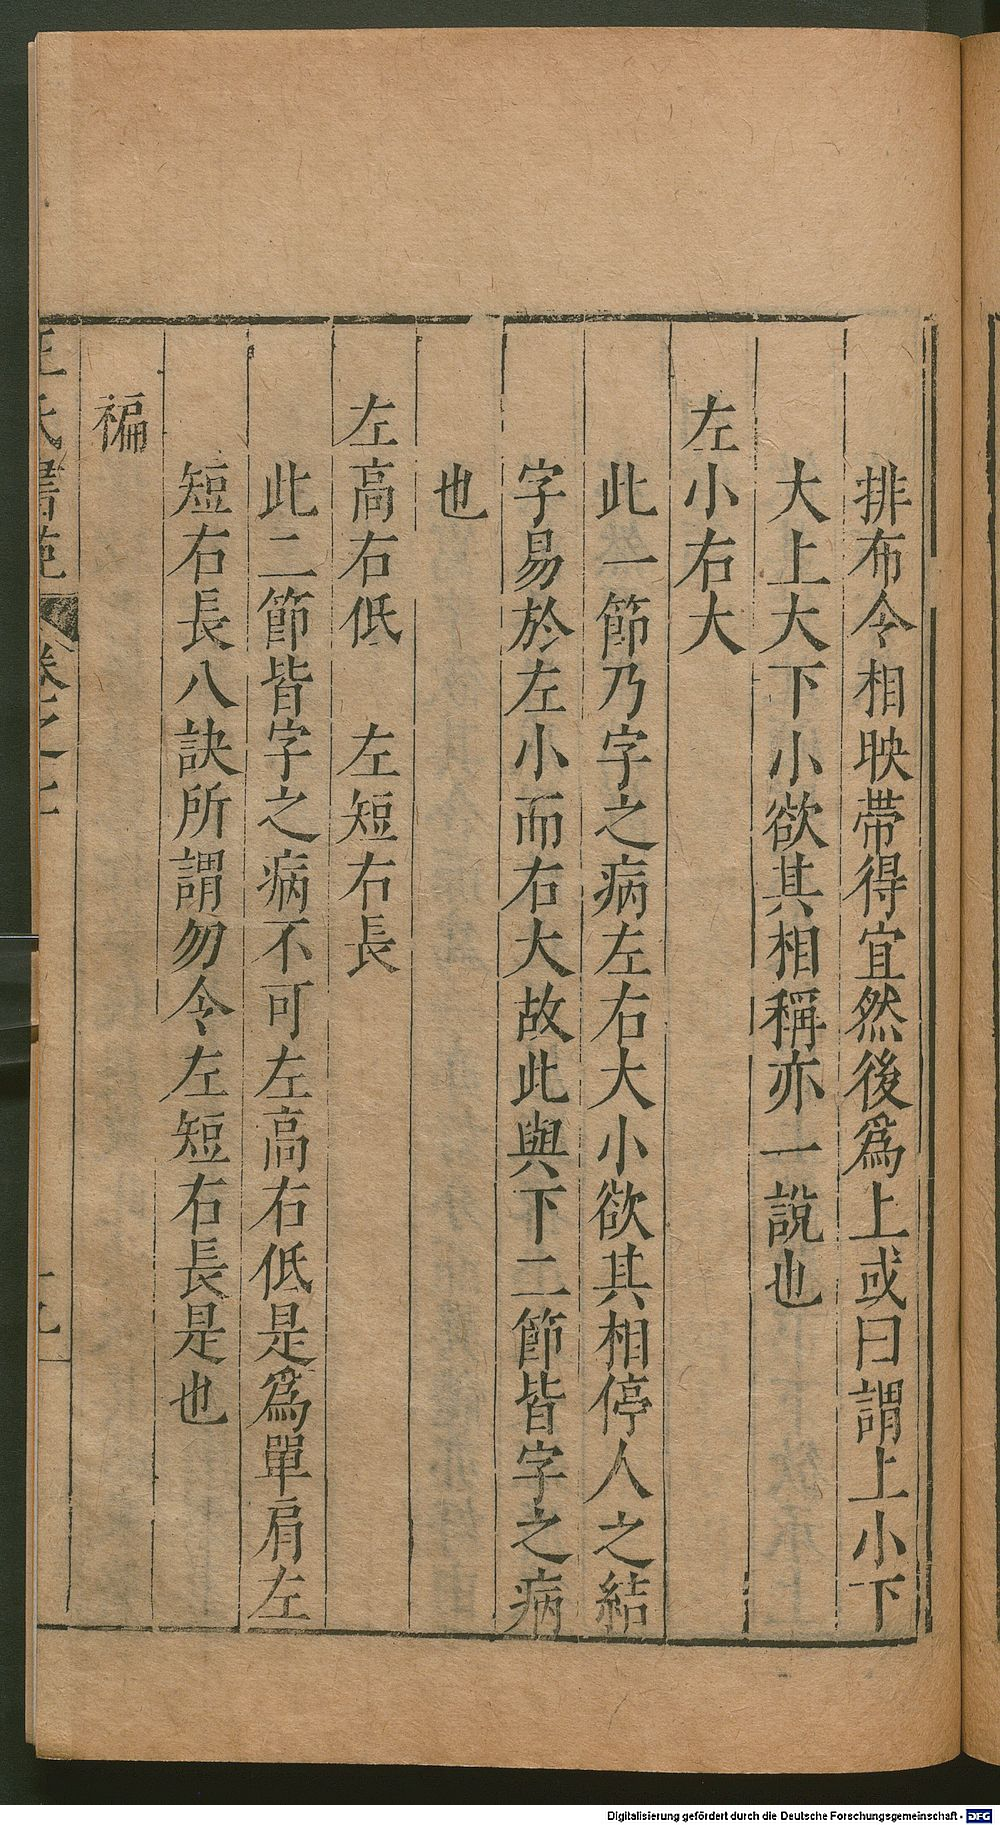 排布令相映帶得宜然後爲上或曰謂上小下
大上大下小欲其相稱亦一說也
左小右大
此一節乃字之病左右大小欲其相停人之結
字易於左小而右大故此與下二節皆字之病
也
左高右低　左短右長
此二節皆字之病不可左高右低是爲單肩左
短右長八訣所謂勿令左短右長是也
褊
王氏書苑　卷之
Digitalisierung gefördert durch die Deutsche Forschungsgemeinschaft - DFG